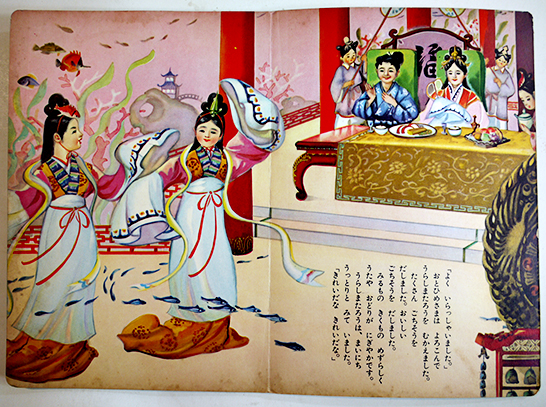 「よく いらっしゃいました。」
おとひめさまは よろこんで
うらしまたろうを むかえました。
たくさん ごちそうを
だしました。おいしい
ごちそうを だしました。
みるもの きくもの めずらしく
うたや おどりが にぎやかです。
うらしまたろうは、まいにち
うっとりと みて いました。
「きれいだな きれいだな。」